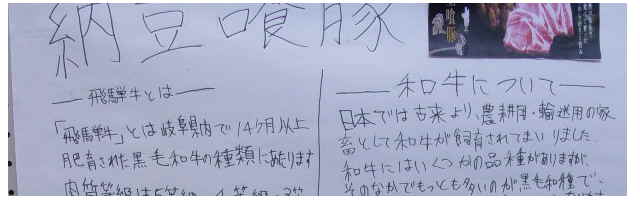 納豆喰豚
飛騨牛とは
「飛騨牛」とは岐阜県内で14ヶ月以上
肥育された黒毛和牛の種類に限ります
肉質等級は5等級、4等級、3等
和牛について
日本では古来より、農耕用・輸送用の家
畜として和牛が飼育されてまいりました。
和牛にはいくつかの品種がありますが、
そのなかでもっとも多いのが黒毛和種で、